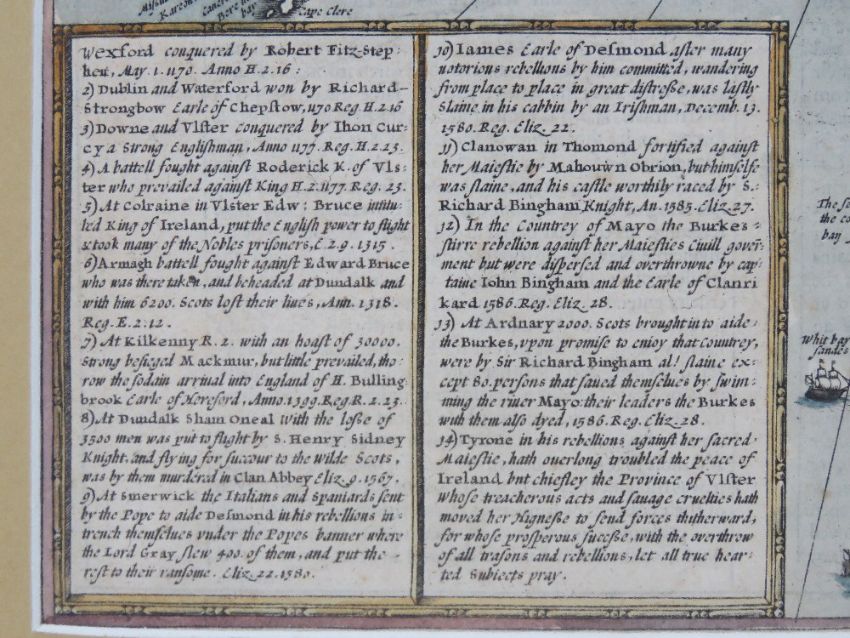 Cape Clere
Wexford conquered by Robert Fitz-Step:
hen, May. 1. 1170. Anno H. 2. 16:
2) Dublin and Waterford won by Richard-
Strongbow Earle of Chepstow, 1170 Reg. H. 2. 16
3) Downe and Vlster conquered by Ihon Cur:
cy a strong Englishman, Anno 1177. Reg. H. 2. 23.
4) A battell fought against Roderick K. of Vls:
ter who prevailed against King H. 2. 1177. Reg. 23.
5) At Colraine in Vlster Edw: Bruce intitu:
led King of Ireland, put the English power to flight
& took many of the Nobles prisoners, E. 2. 9. 1315.
6) Armagh battell fought against Edward Bruce
who was there taken, and beheaded at Dundalk and
with him 6200. Scots lost their lives, Ann. 1318.
Reg. E. 2. 12.
7) At Kilkenny R. 2. with an hoast of 30000.
strong besieged Mackmur, but little prevailed, tho:
row the sodain arrival into England of H. Bulling
brook Earle of Hereford, Anno. 1399. Reg R. 2. 23.
8) At Dundalk Sham Oneal with the losse of
3500 men was put to flight by S. Henry Sidney
Knight, and flying for succour to the wilde Scots,
was by them murdered in Clan Abbey Eliz. 9. 1567.
9) At Smerwick the Italians and Spaniards sent
by the Pope to aide Desmond in his rebellions in:
trench themselues vnder the Popes banner where
the Lord Gray slew 400. of them, and put the
rest to their ransome. Eliz. 22. 1580.
10) Iames Earle of Desmond, after many
notorious rebellions by him committed, wandering
from place to place in great distresse, was lastly
Slaine in his cabbin by an Irishman, Decemb. 13.
1580. Reg. Eliz. 22.
11) Clanowan in Thomond fortified against
her Maiestie by Mahouwn Obrion, but himselfe
was slaine, and his castle worthily raced by S.:
Richard Bingham Knight, An. 1585. Eliz. 27.
12) In the Countrey of Mayo the Burkes =
stirre rebellion against her Maiesties Ciuill govern:
ment but were dispersed and overthrowne by cap:
taine Iohn Bingham and the Earle of Clanri
kard 1586. Reg. Eliz. 28.
13) At Ardnary 2000. Scots brought in to aide:
the Burkes, vpon promise to enioy that countrey,
were by Sir Richard Bingham al! slaine ex:
cept 80. persons that saued themselues by swim:
ming the riuer Mayo: their leaders the Burkes
with them also dyed, 1586. Reg. Eliz. 28.
14) Tyrone in his rebellions against her sacred:
Maiestie, hath overlong troubled the peace of
Ireland but chiefley the Province of Vlster
whose treacherous acts and sauage cruelties hath
moved her Highnesse to send forces thitherward,
for whose prosperous sucesse, with the overthrow
of all trasons and rebellions, let all true hear:
ted Subiects pray.
Whit bay
sandes